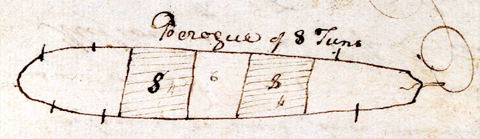 Perogue of 8 Tuns
8 6 8
4